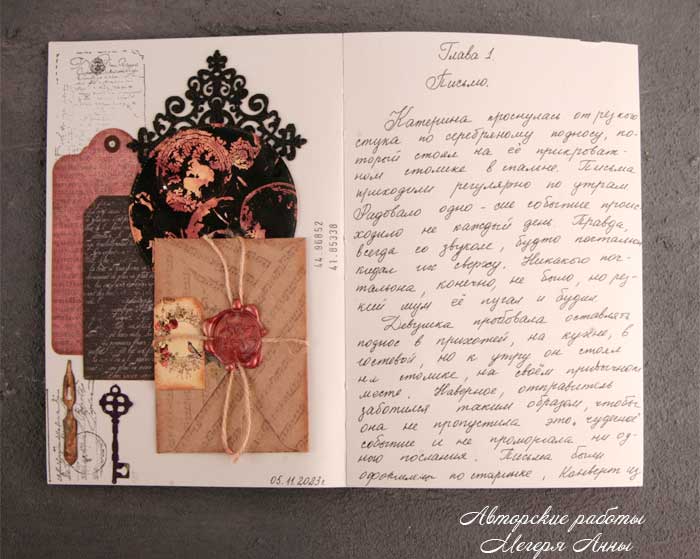 44 96852
41.85338
05.11.2023г.
Глава 1
Письмо.
Катерина проснулась от резкого
стука по серебряному подносу, ко-
торый стоял на её прикроват-
ном столике в спальне. Письма
приходили регулярно по утрам
Радовало одно - сие событие проис
ходило не каждый день. Правда,
всегда со звуком, будто постальон
кидал их сверху. Никакого поч-
тальона, конечно, не было, но рез-
кий шум её пугал и будил
Девушка пробовала оставлять
поднос в прихожей, на кухне, в
гостевой, но к утру он стоял
на столике, на своём привычном
месте. Наверное, отправитель
заботился таким образом, чтобы
она не пропустила это чудесное
событие и не проморгала ни од-
ного послания. Письма были
оформлены по старинке, Конверт из
Авторские работы
Мегеря Анны